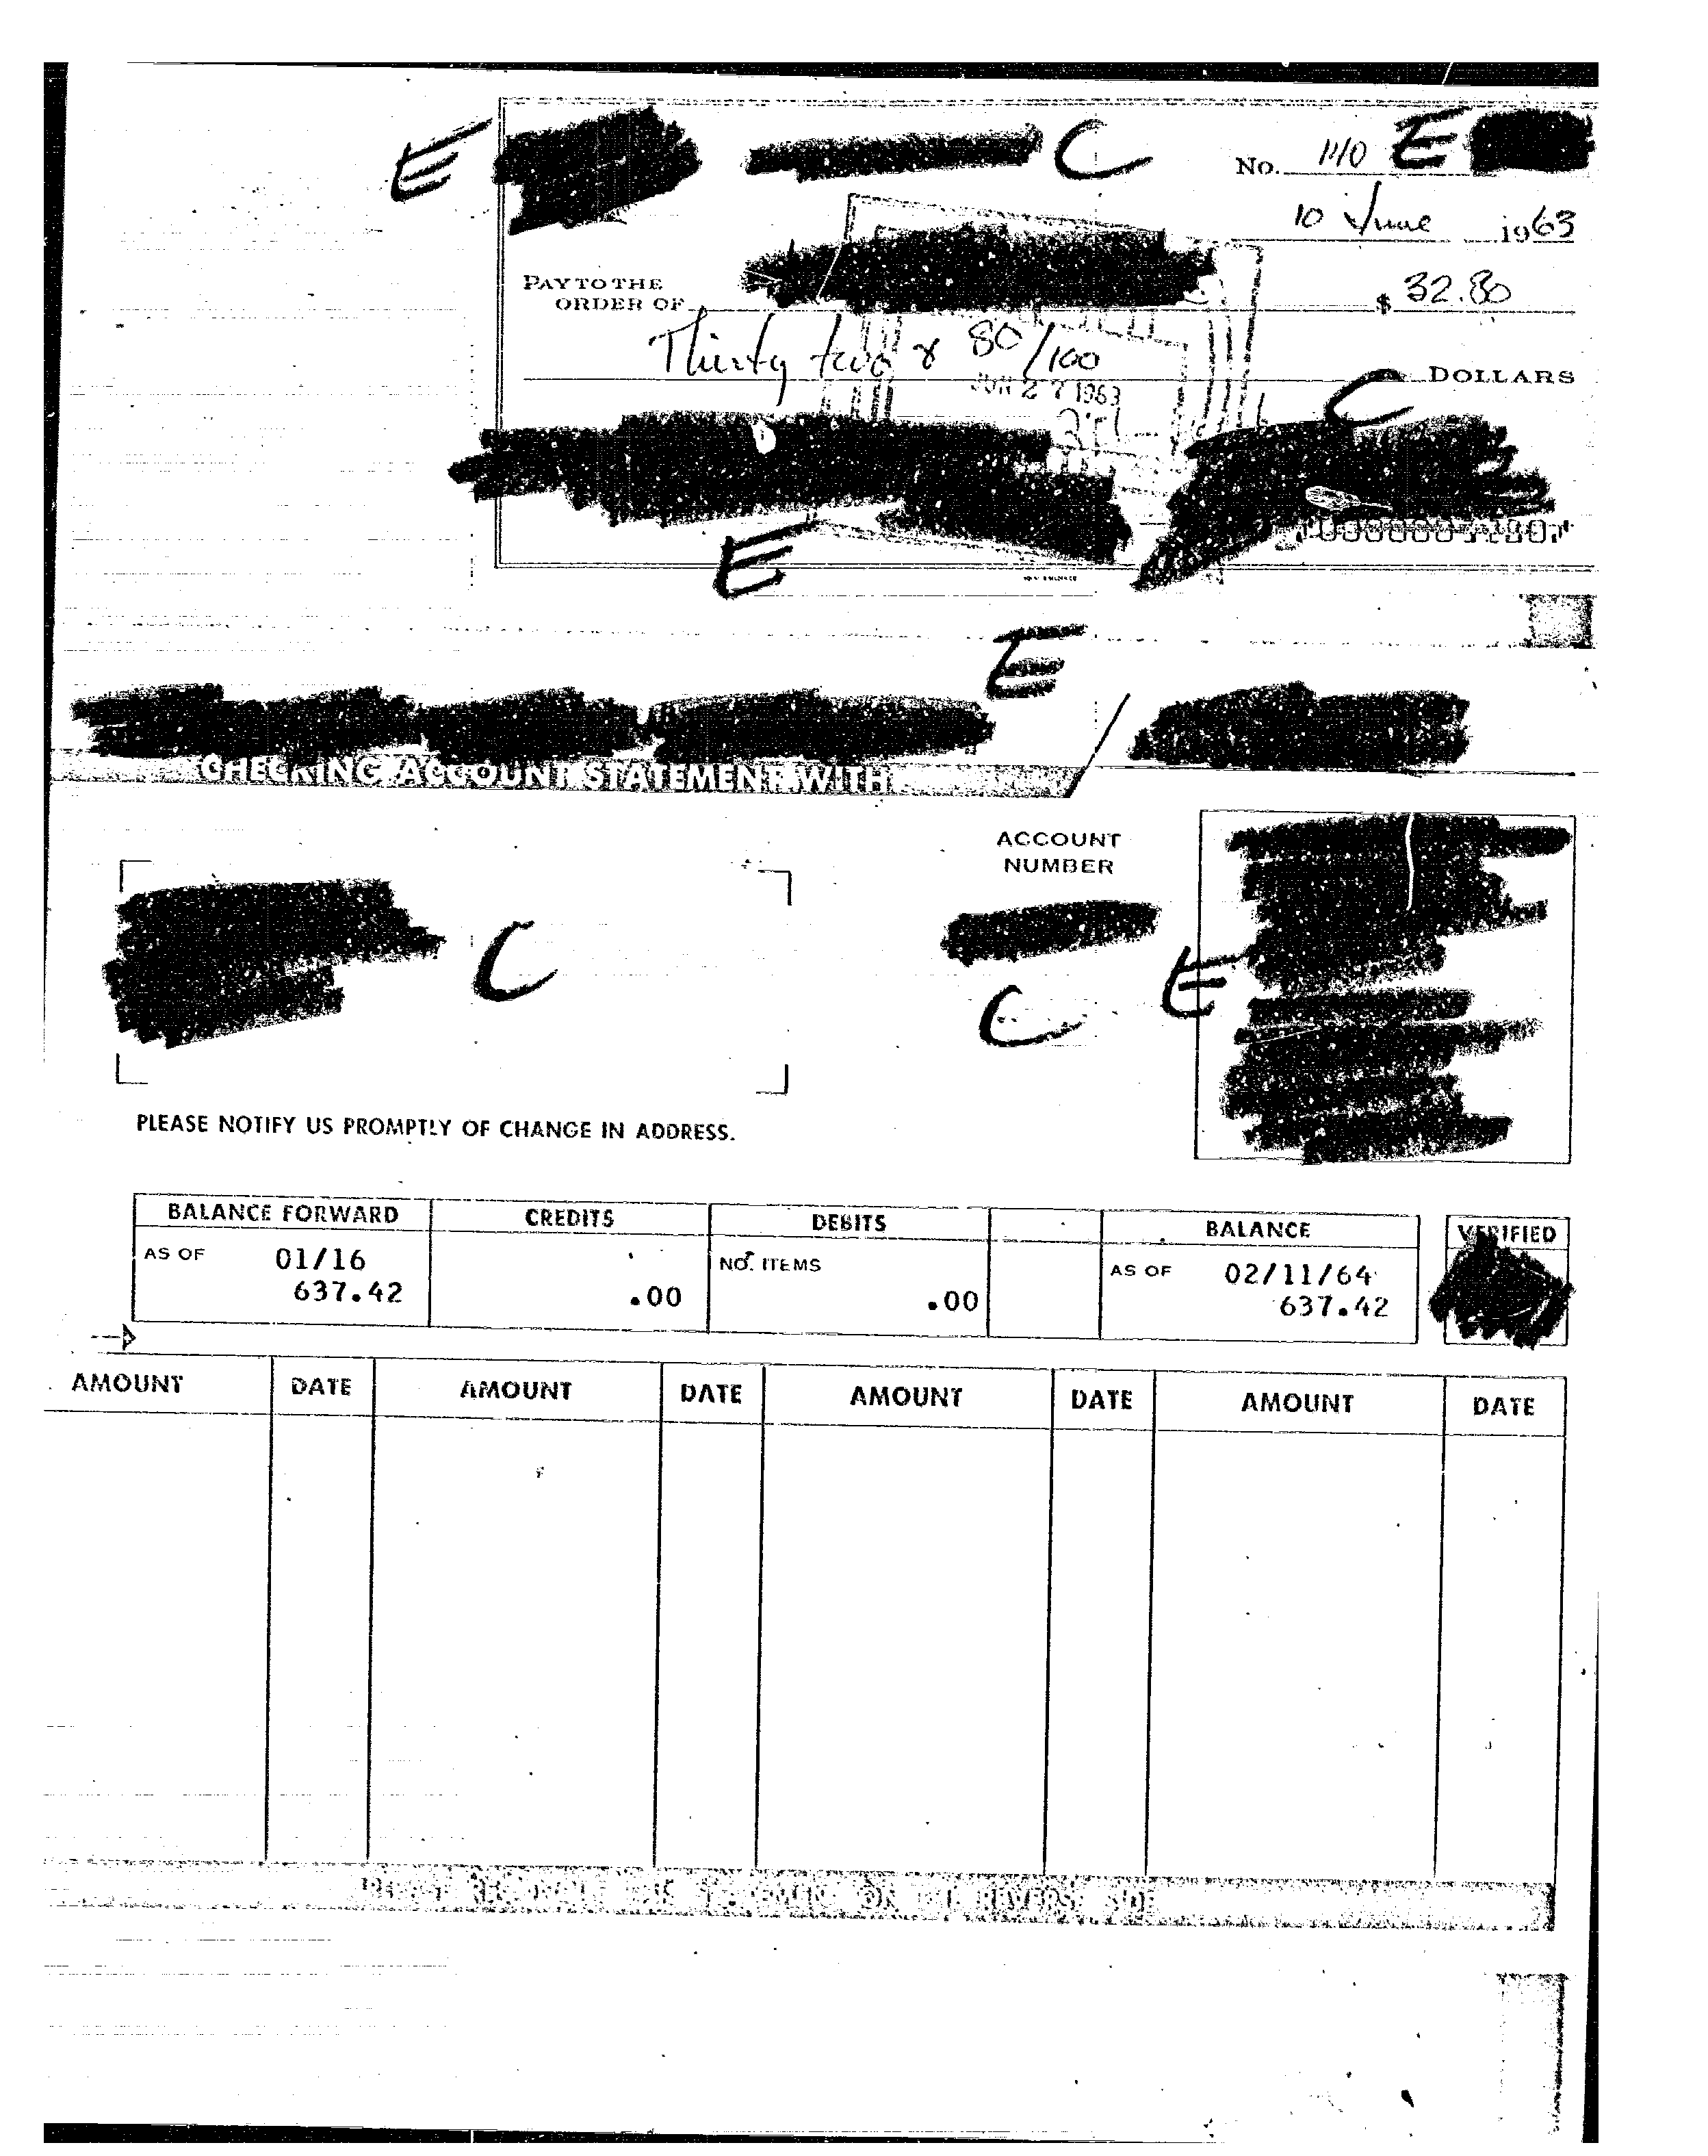 E C No. 1110 E
10 June 1963
PAY TO THE
ORDER OF $ 32.80
Thirty two & 80/100
DOLLARS
JUN 27 1963
C
E
E
CHECKING ACCOUNT STATEMENT WITH
ACCOUNT
NUMBER
C
C E
PLEASE NOTIFY US PROMPTLY OF CHANGE IN ADDRESS.
BALANCE FORWARD CREDITS DEBITS BALANCE VERIFIED
AS OF 01/16 NO. ITEMS AS OF 02/11/64
637.42 .00 .00 637.42
AMOUNT DATE AMOUNT DATE AMOUNT DATE AMOUNT DATE
STATEMENT ON THE REVERSE SIDE